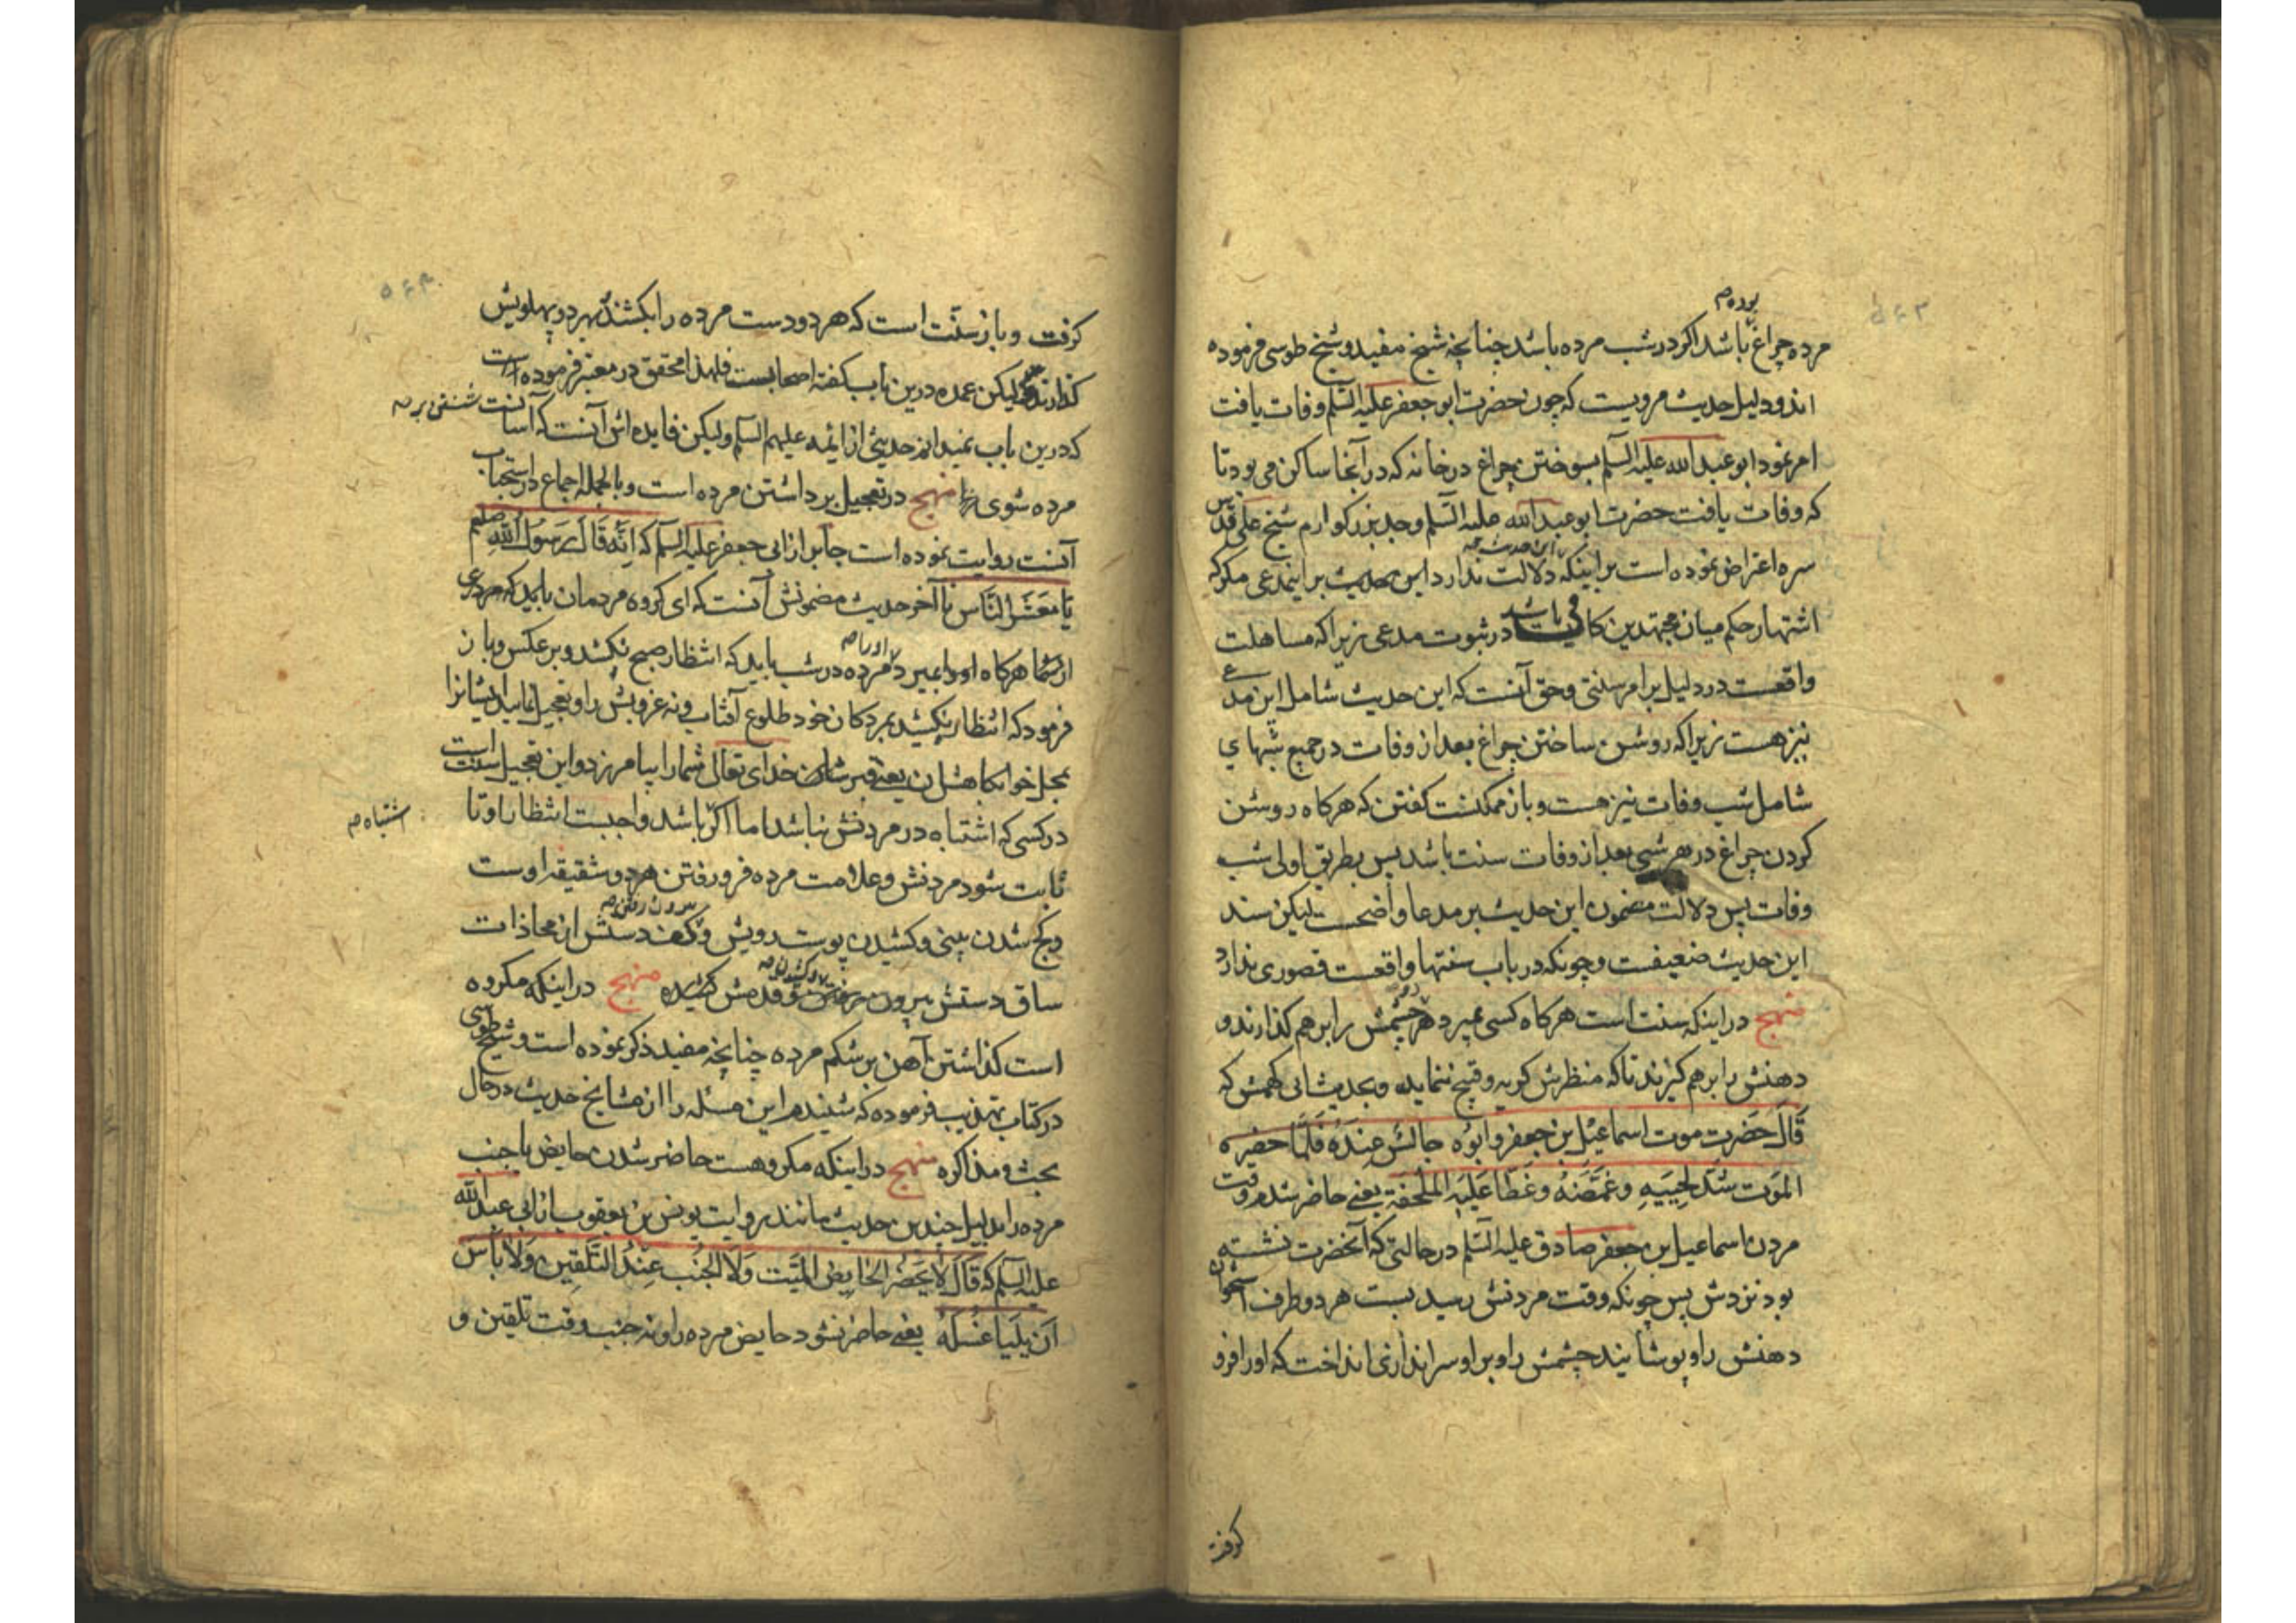 بوده م
مرده چراغ باشد اکر در شب مرده باشد چنانچه شیخ مفید و شیخ طوسی فرموده
اند و دلیل حدیث مرویست که چون حضرت ابو جعفر علیه السلم وفات یافت
امر نمود ابو عبد الله علیه السلم بسوختن چراغ در خانه که در آنجا ساکن می بود تا
که وفات یافت حضرت ابو عبد الله علیه السلم و جد بزرکوارم شیخ علی قدس
سره اعتراض نموده است بر اینکه دلالت ندارد این حدیث بر این مدعی مکر که
اشتهار حکم میان مجتهدین کافی باشد در ثبوت مدعی زیرا که مساهلت
واقعست در دلیل بر امر سنتی و حق آنست که این حدیث شامل این مدعی
نیز هست زیرا که روشن ساختن چراغ بعد از وفات در جمیع شبهای
شامل شب وفات نیز هست و باز ممکنست کفتن که هرکاه روشن
کردن چراغ در هر شبی بعد از وفات سنت باشد پس بطریق اولی شب
وفات پس دلالت مضمون این حدیث بر مدعا واضحست لیکن سند
این حدیث ضعیفست و چونکه در باب سنتها واقعست قصوری ندارد
منهج در اینکه سنت است هرکاه کسی بمیرد هر دو چشمش را بر هم کذارند و
دهنش را بر هم کیرند تا که منظرش کریه و قبیح ننماید و بحدیث ابی کهمش که
قَالَ حَضَرتِ موت اسماعیل بن جعفر و ابوُه جالسٌ عِندَهُ فَلَمّا حضره
المَوت شَدّ لحییَهِ و غَمَّضَهُ و غَطّا عَلَیهِ المِلحَفة یعنی حاضر شدم وقت
مردن اسماعیل بن جعفر صادق علیه السلم در حالتی که آنحضرت نشسته
بود نزدش پس چونکه وقت مردنش رسید بست هر دو طرف استخوان
دهنش را و پوشانید چشمش را و بر او سرانداز انداخت که او را فرو
کرفت
کرفت و باز سنّت است که هر دو دست مرده را بکشند بهر دو پهلویش
کذارند لیکن عمده درین باب کفته اصحابست فلهذا محقق در معتبر فرموده است
که درین باب نمیدانم حدیثی از ایمه علیهم السلم ولیکن فایده اش آنست که آسانست
مرده شوی را منهج در تعجیل برداشتن مرده است و بالجمله اجماع در استحباب
آنست روایت نموده است جابر از ابی جعفر علیه السلم که انّه قَالَ رَسُولُ اللهِ صلعم
یا مَعشَر النَّاس تا آخر حدیث مضمونش آنست که ای کروه مردمان باید که مردی
از شما هرکاه او را بمیرد مرده در شب باید که انتظار صبح نکشد و بر عکس و باز
فرمود که انتظار نکشید بمردکان خود طلوع آفتاب و نه غروبش را و تعجیل نمایید ایشانرا
بمحل خوابکاهشان یعنی قبرشان خدای تعالی شما را بیامرزد و این تعجیل سنت است
در کسی که اشتباه در مردنش نباشد اما اکر باشد واجبست انتظار او تا
اشتباه م
ثابت شود مردنش و علامت مرده فرو رفتن هر دو شقیقه اوست
و کج شدن بینی و کشیدن پوست رویش و کف دستش از محاذات
ساق دستش بیرون قدمش کشیده منهج در اینکه مکروه
است کذاشتن آهن بر شکم مرده چنانچه مفید ذکر نموده است و شیخ طوسی
در کتاب تهذیب فرموده که شنیدم این مسئله را از مشایخ حدیث در حال
بحث و مذاکره منهج در اینکه مکروهست حاضر شدن حایض یا جنب
مرده را بدلیل چندین حدیث مانند روایت یونس بن یعقوب از ابی عبد الله
علیه السلم که قَالَ لاَ یَحضُر الحَایِض المیّت وَلَا الجُنب عِندُ التَّلقِینِ وَلَا بَأسَ
اَن یَلیَا غُسلَهُ یعنی حاضر نشود حایض مرده را و نه جنب وقت تلقین و